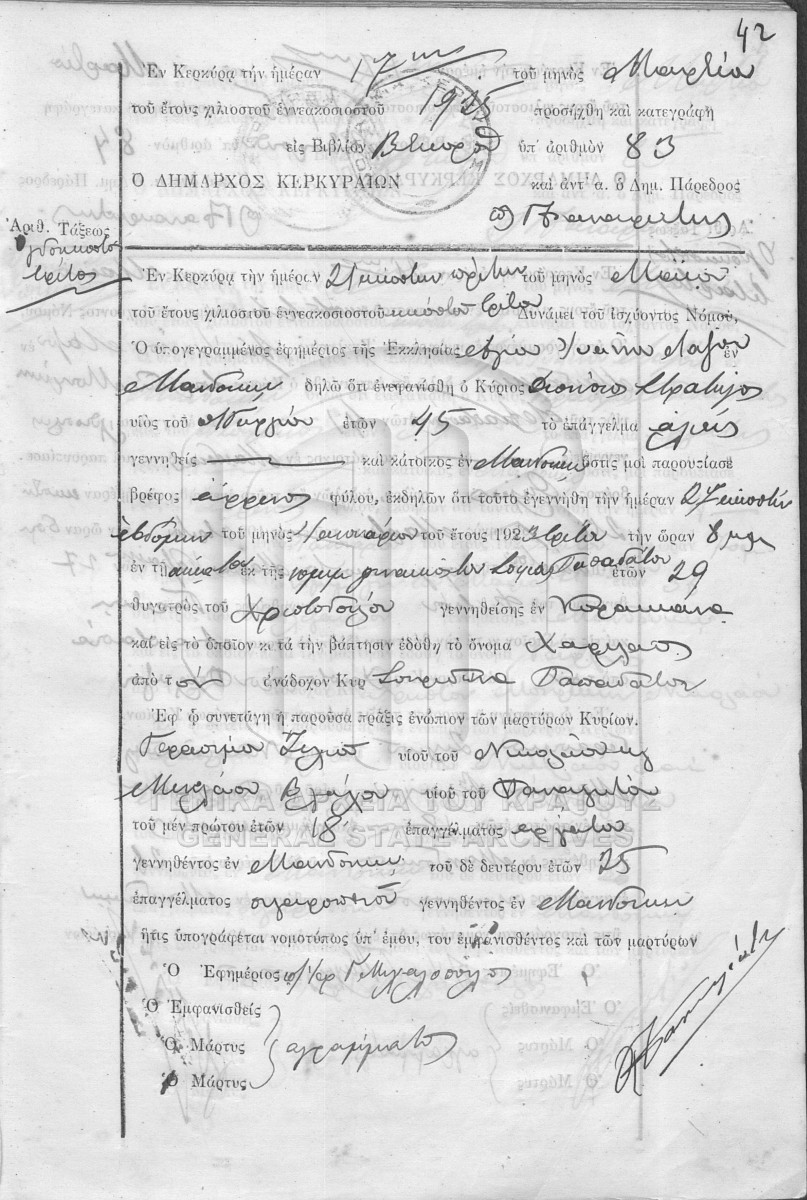 42
Ἐν Κερκύρᾳ τὴν ἡμέραν 17 τοῦ μηνὸς Μαρτίου
τοῦ ἔτους χιλιοστοῦ ἐννεακοσιοστοῦ 1925 προσήχθη καὶ κατεγράφη
εἰς Βιβλίον ὑπ' ἀριθμὸν 83
Ο ΔΗΜΑΡΧΟΣ ΚΕΡΚΥΡΑΙΩΝ καὶ ἀντ' α. ὁ Δημ. Πάρεδρος
Ἀριθ. Τάξεως
τρίτος
Ἐν Κερκύρᾳ τὴν ἡμέραν 21 εἰκοστὴν πρώτην τοῦ μηνὸς Μαΐου
τοῦ ἔτους χιλιοστοῦ ἐννεακοσιοστοῦ εἰκοστοῦ τρίτου Δυνάμει τοῦ ἰσχύοντος Νόμου,
Ὁ ὑπογεγραμμένος ἐφημέριος τῆς Ἐκκλησίας Ἁγίου ἐν
Μανδούκιῳ δηλῶ ὅτι ἐνεφανίσθη ὁ Κύριος Διονύσιος Στρατηγὸς
υἱὸς τοῦ Γεωργίου ἐτῶν 45 τὸ ἐπάγγελμα ἁλιεὺς
γεννηθεὶς καὶ κάτοικος ἐν Μανδούκιῳ ὅστις μοι παρουσίασε
βρέφος ἄρρενος φύλου, ἐκδηλῶν ὅτι τοῦτο ἐγεννήθη τὴν ἡμέραν 27 εἰκοστὴν
ἑβδόμην τοῦ μηνὸς Ἰανουαρίου τοῦ ἔτους 1923 τρίτου τὴν ὥραν 8 μμ
ἐν τῇ οἰκίᾳ του ἐκ τῆς νομίμου γυναικός του Σοφίας Παπαδάτου ἐτῶν 29
θυγατρὸς τοῦ Χριστοδούλου γεννηθείσης ἐν Κορακιάνα
καὶ εἰς τὸ ὁποῖον κατὰ τὴν βάπτησιν ἐδόθη τὸ ὄνομα Χαρίλαος
ἀπὸ τὸν ἀνάδοχον Κυρ Σπυρίδωνα Παπαδάτον
Ἐφ' ᾧ συνετάγη ἡ παροῦσα πρᾶξις ἐνώπιον τῶν μαρτύρων Κυρίων.
Γερασίμου υἱοῦ τοῦ Νικολάου καὶ
Μιχαήλου Βλάχου υἱοῦ τοῦ Παναγιώτου
ΓΕΝΙΚΑ ΑΡΧΕΙΑ ΤΟΥ ΚΡΑΤΟΥΣ
τοῦ μὲν πρώτου ἐτῶν 18 ἐπαγγέλματος ἐργάτου
GENERAL STATE ARCHIVES
γεννηθέντος ἐν Μανδούκιῳ τοῦ δὲ δευτέρου ἐτῶν 25
ἐπαγγέλματος σιγαροποιοῦ γεννηθέντος ἐν Μανδούκιῳ
ἥτις ὑπογράφεται νομοτύπως ὑπ' ἐμοῦ, τοῦ ἐμφανισθέντος καὶ τῶν μαρτύρων
Ὁ Ἐφημέριος
Ὁ Ἐμφανισθεὶς
Ὁ Μάρτυς ἀγράμματοι
Ὁ Μάρτυς